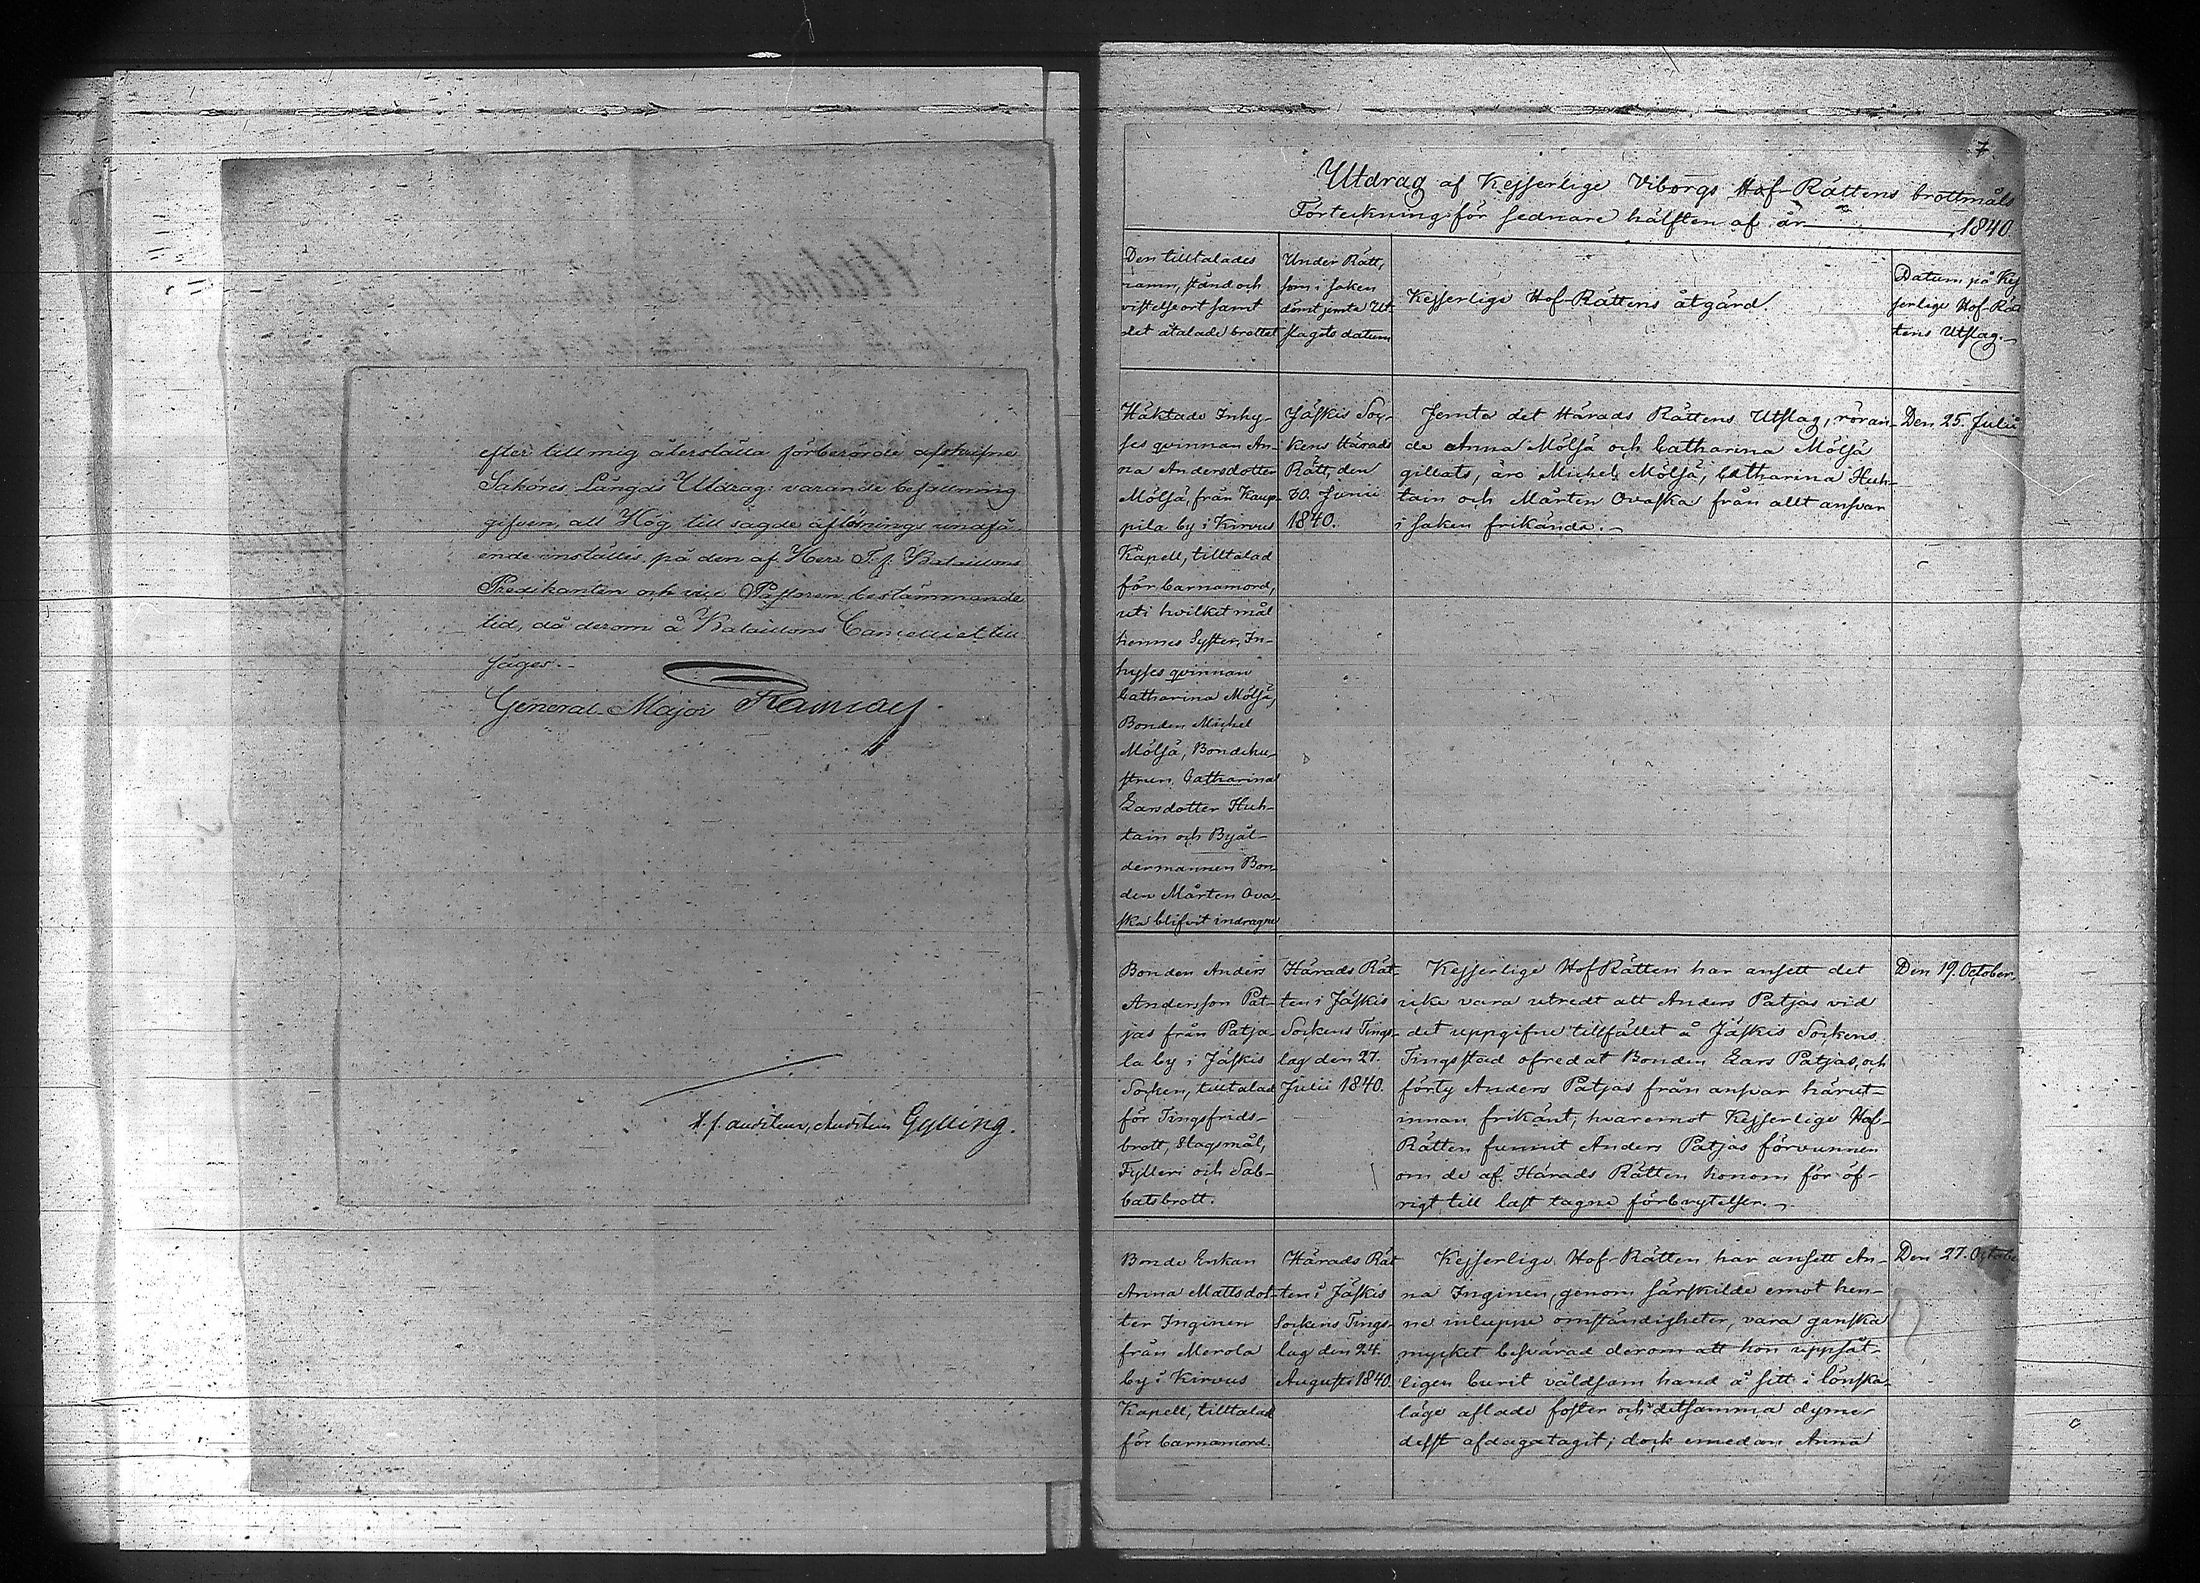 efter till mig återställa förberörde afskrifne
Saköres Längds Utdrag: varande befallning
gifven, att Hög till sagde aflösnings undfå-
ende inställes på den af Herr T. f. Bataillons
Predikanten och vice Pastoren bestämmande
tid, då derom å Bataillons Cancelliet till
säges.
General-Major Ramsay
T. f. auditeur, Auditeur Gylling.
7.
Utdrag af Kejserlige Viborgs Hof-Rättens brottmåls
Förteckning för sednare hälften af år 1840
Den tilltalades
namn, stånd och
vistelseort samt
det åtalade brottet
Under Rätt,
som i saken
dömt jemte Ut-
slagets datum
Kejserlige Hof-Rättens åtgärd.
Datum på Kej
serlige Hof-Rät
tens Utslag.
Häktade Inhy-
ses qvinnan An-
na Andersdotter
Mölsä, från Kaup-
pila by i Kirvus
Kapell, tilltalad
för barnamord,
uti hvilket mål
hennes Syster, In-
hyses qvinnan
Catharina Mölsä,
Bonden Michel
Mölsä, Bondehu-
strun Catharina
Larsdotter Huh-
tain och Byål-
dermannen Bon-
den Mårten Ova-
ska blifvit indragne
Jäskis Soc-
kens Härads
Rätt, den
30. Junii
1840.
Jemte det Härads Rättens Utslag, röran-
de Anna Mölsä och Catharina Mölsä
gillats, äro Michel Mölsä, Catharina Huh-
tain och Mårten Ovaska från allt ansvar
i saken frikände.
Den 25. Julii
Bonden Anders
Andersson Pat-
jas från Patja-
la by i Jäskis
Socken, tilltalad
för Tingsfrids-
brott, Slagsmål,
Fylleri och Sab-
batsbrott.
Härads Rät-
ten i Jäskis
Sockens Tings-
lag den 27.
Julii 1840.
Kejserlige Hof Rätten har ansett det
icke vara utredt att Anders Patjas vid
det uppgifne tillfället å Jäskis Sockens
Tingsstad ofredat Bonden Lars Patjas, och
förty Anders Patjas från ansvar härut-
innan frikänt; hvaremot Kejserlige Hof-
Rätten funnit Anders Patjas förvunnen
om de af Härads Rätten honom för öf-
rigt till last tagne förbrytelser.
Den 19. October.
Bonde Enkan
Anna Mattsdot-
ter Inginen
från Merola
by i Kirvus
Kapell, tilltalad
för barnamord.
Härads Rät
ten i Jäskis
Sockens Tings-
lag den 24.
Augusti 1840.
Kejserlige Hof-Rätten har ansett An-
na Inginen, genom särskilde emot hen-
ne inluppe omständigheter, vara ganska
mycket besvärad derom att hon uppsåt-
ligen burit våldsam hand å sitt i lönska-
läge aflade foster och detsamma dyme-
delst afdagatagit; dock emedan Anna
Den 27. Octobe